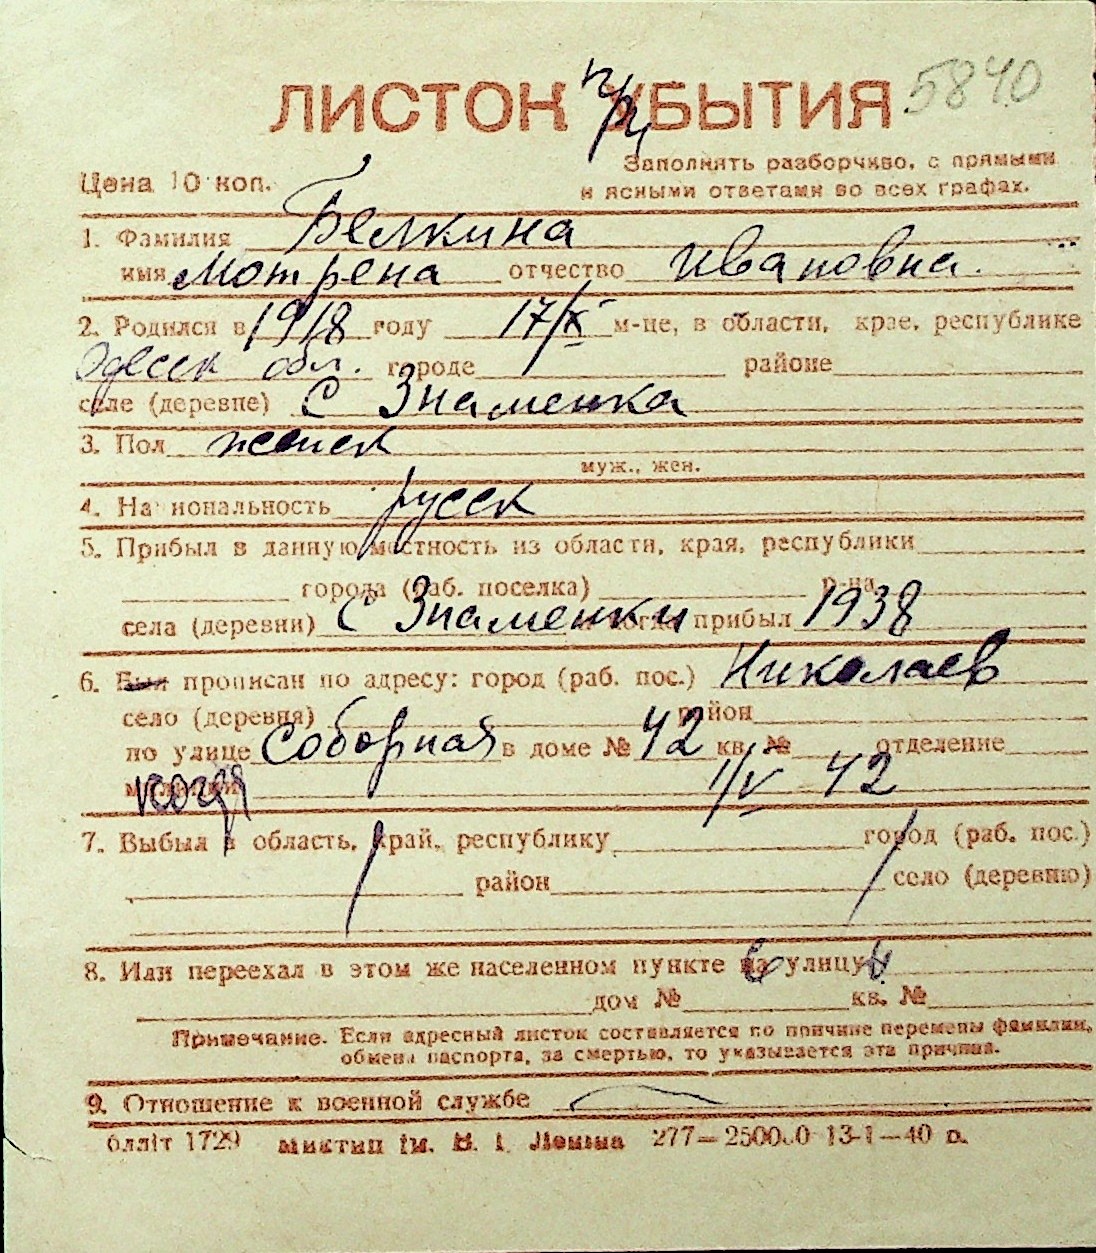 ЛИСТОК УБЫТИЯ 5840
При
Заполнять разборчиво, с прямыми
Цена 10 коп. и ясными ответами во всех графах.
1. Фамилия Белкина
имя Мотрена отчество Ивановна.
2. Родился в 1918 году 17/X м-це, в области, крае, республике
Одесск обл. городе районе
селе (деревне) С Знаменка
3. Пол женск
муж., жен.
4. Национальность русск
5. Прибыл в данную местность из области, края, республики
города (раб. поселка) р-на
села (деревни) С Знаменки и когда прибыл 1938
6. Был прописан по адресу: город (раб. пос.) Николаев
село (деревня) район
по улице Соборная в доме № 42 кв. № отделение
милиции когда 1/V 42
7. Выбыл в область, край, республику город (раб. пос.)
район село (деревню)
8. Или переехал в этом же населенном пункте на улицу
дом № кв. №
Примечание. Если адресный листок составляется по причине перемены фамилии,
обмена паспорта, за смертью, то указывается эта причина.
9. Отношение к военной службе
1729 ім. В. І. Леніна 277—250000 13-1—40 р.